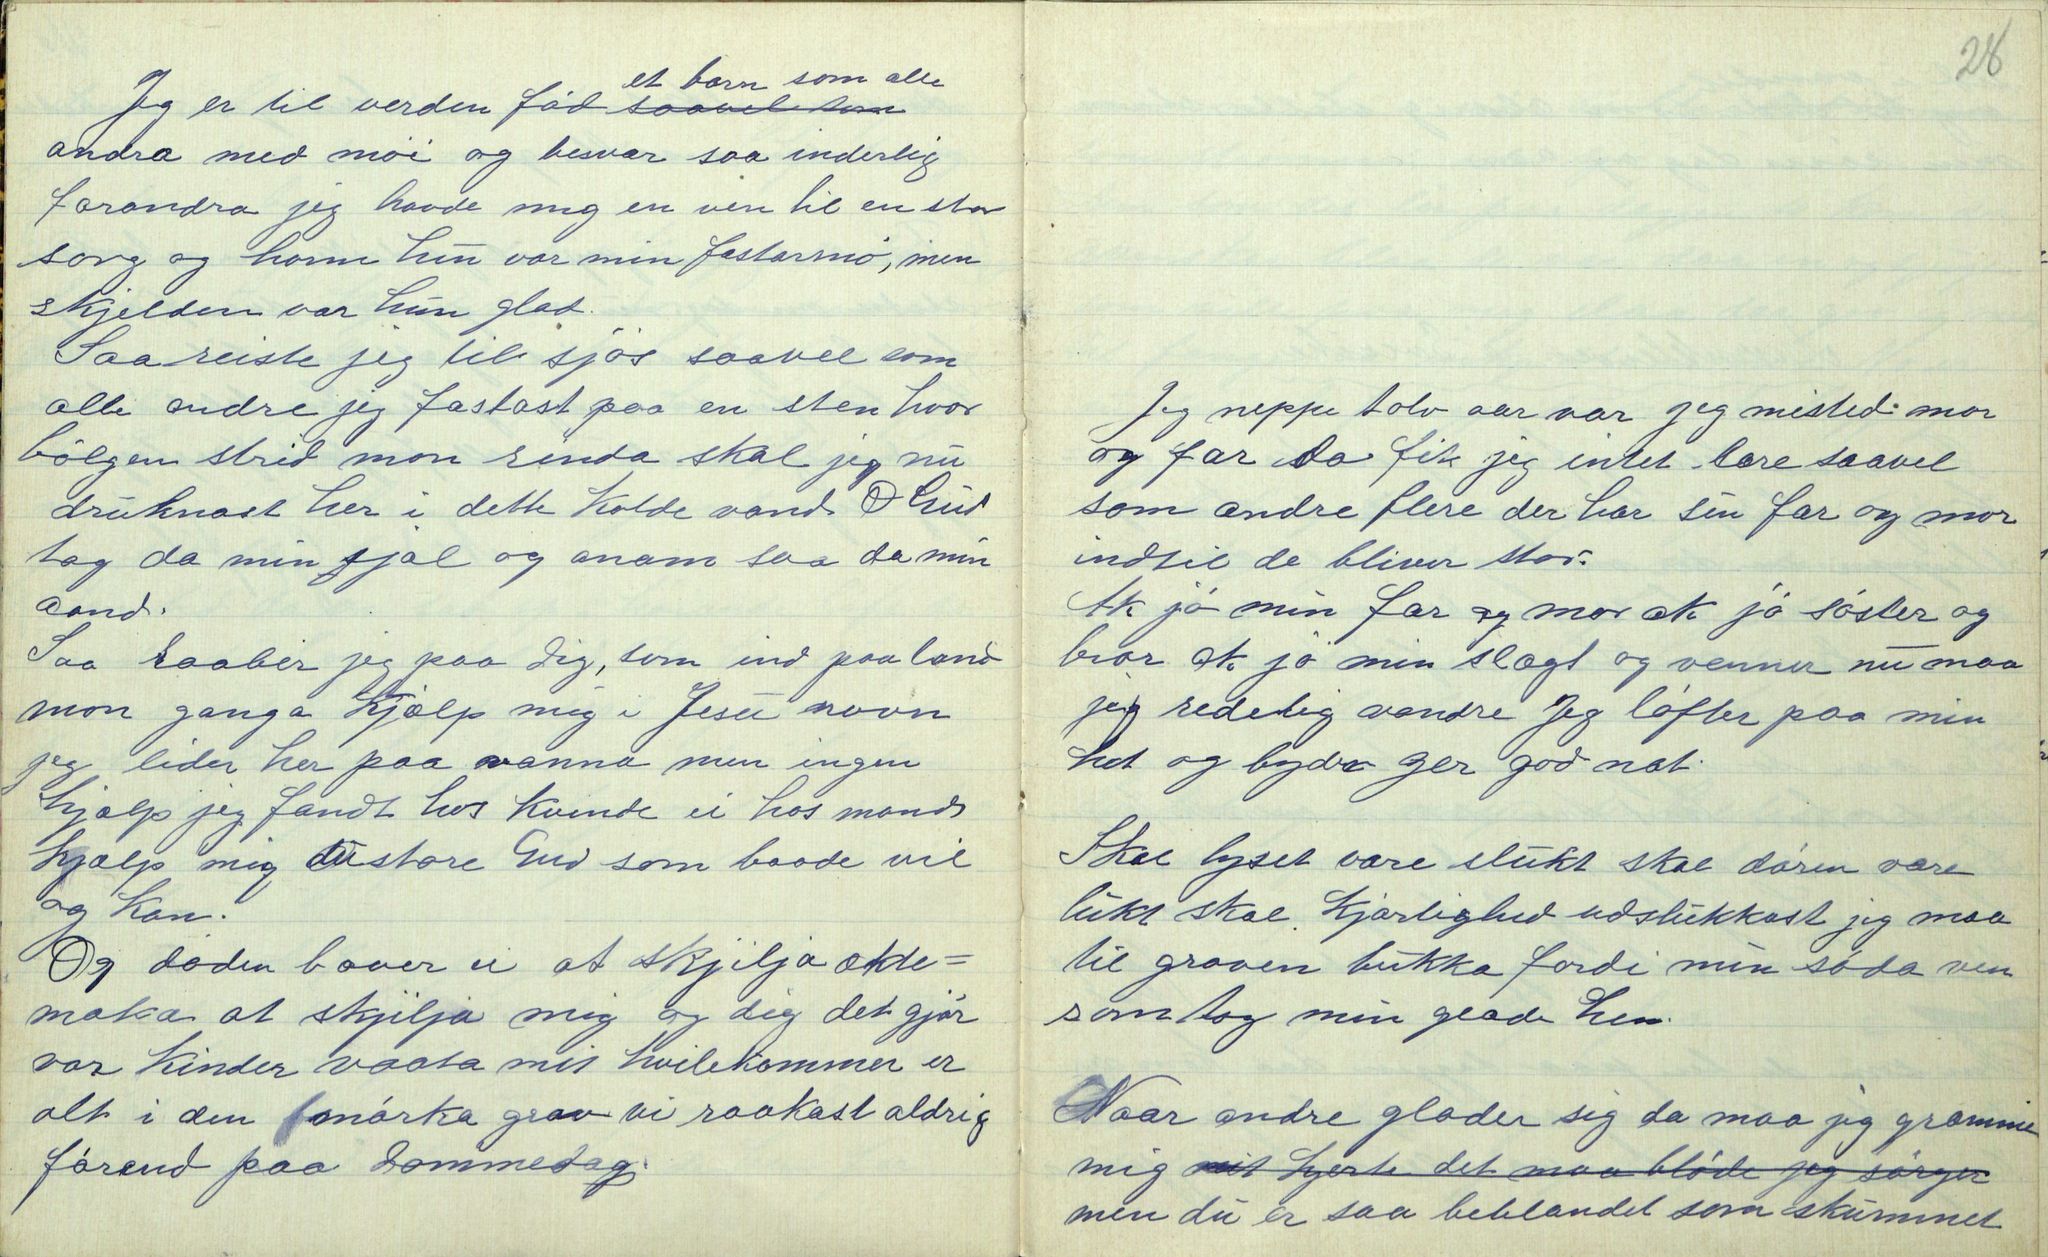 et barn som alle
Jeg er til verden fád saavel som
andra med möi og besvær saa inderlig
forandra jeg havde mig en ven til en stor
sorg og harm hun var min fæstarmö, men
skjelden var hun glad.
Saa reiste jeg til sjös saavel som
alle andre jeg fastast paa en sten hvor
bölgen strid mon renda skal jeg nu
druknast her i dette kolde vand O Gud
tag da min sjæl og anam saa da min
aand.
Saa raaber jeg paa dig, som ind paa land
mon ganga hjælp mig i Jesu navn
jeg lider her paa vanna men ingen
hjælp jeg fandt hos kvinde ei hos mand
hjælp mig du store Gud som baade vil
og kan.
Og döden baver ei at skjilja ækte=
maka at skjilja mig og dig det gjör
vor kinder vaata mit hvilekammer er
alt i den mörka grav vi raakast aldrig
förend paa Dommedag.
28
Jeg neppe tolv aar var jeg misted mor
og far da fik jeg intet lære saavel
som andre flere der har sin far og mor
indtil de bliver stor.
Ak jö min far og mor ak jö söster og
bror ak jö min slægt og venner nu maa
jeg redelig vandre Jeg löfter paa min
hat og byder Jer god nat.
Skal lyset være slukt skal dören være
lukt skal kjærlighed udslukkast jeg maa
til graven bukka fordi min söda ven
som tog min glæde hen.
Naar andre glæder sig da maa jeg græmme
mig mit hjerte det maa blöde jeg sörger
men du er saa beblandet som skummet